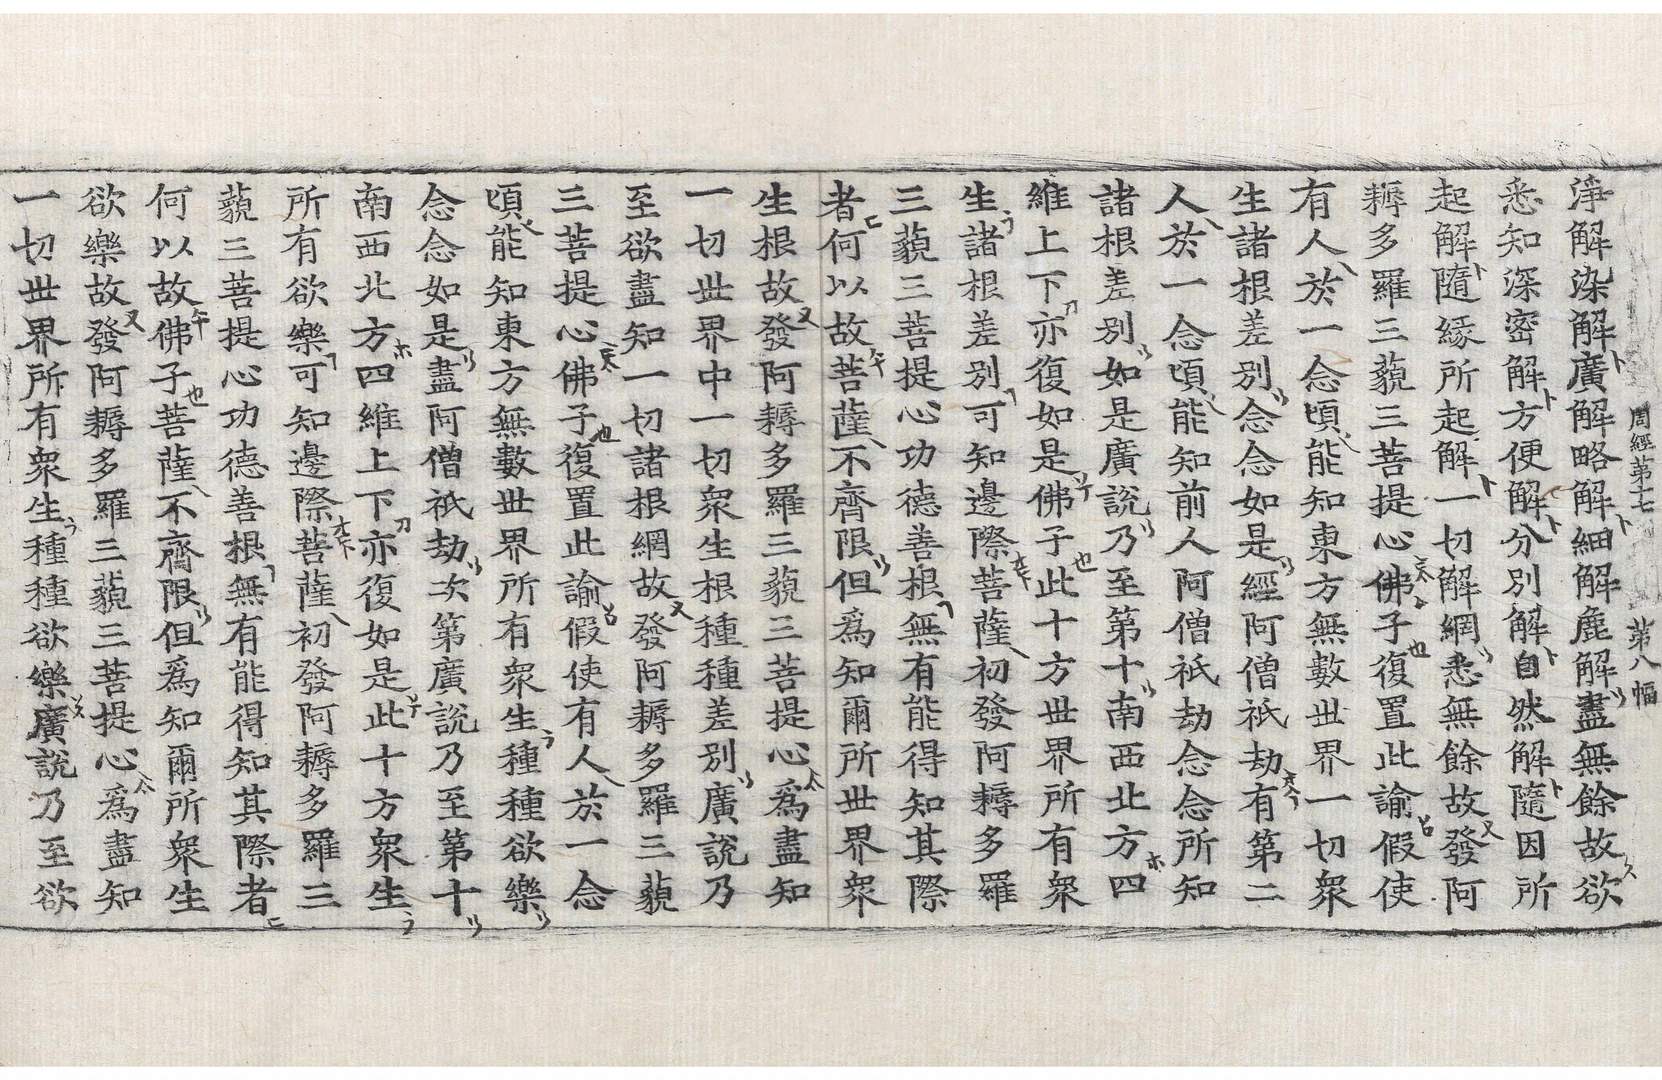 淨解染解廣解略解細解麁解盡無餘故欲
悉知深密解方便解分別解自然解隨因所
起解隨緣所起解一切解網悉無餘故發阿
耨多羅三藐三菩提心佛子復置此諭假使
有人於一念頃能知東方無數世界一切衆
生諸根差別念念如是經阿僧祇劫有第二
人於一念頃能知前人阿僧祇劫念念所知
諸根差別如是廣說乃至第十南西北方四
維上下亦復如是佛子此十方世界所有衆
生諸根差別可知邊際菩薩初發阿耨多羅
三藐三菩提心功德善根無有能得知其際
者何以故菩薩不齊限但爲知爾所世界衆
生根故發阿耨多羅三藐三菩提心爲盡知
一切世界中一切衆生根種種差別廣說乃
至欲盡知一切諸根網故發阿耨多羅三藐
三菩提心佛子復置此諭假使有人於一念
頃能知東方無數世界所有衆生種種欲樂
念念如是盡阿僧祇劫次第廣說乃至第十
南西北方四維上下亦復如是此十方衆生
所有欲樂可知邊際菩薩初發阿耨多羅三
藐三菩提心功德善根無有能得知其際者
何以故佛子菩薩不齊限但爲知爾所衆生
欲樂故發阿耨多羅三藐三菩提心爲盡知
一切世界所有衆生種種欲樂廣說乃至欲
周經第十七 第八幅